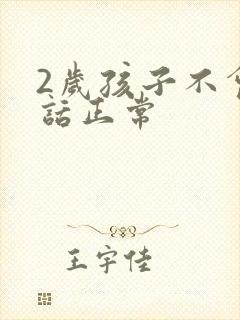 2歲孩子不
話正常
王宇佳